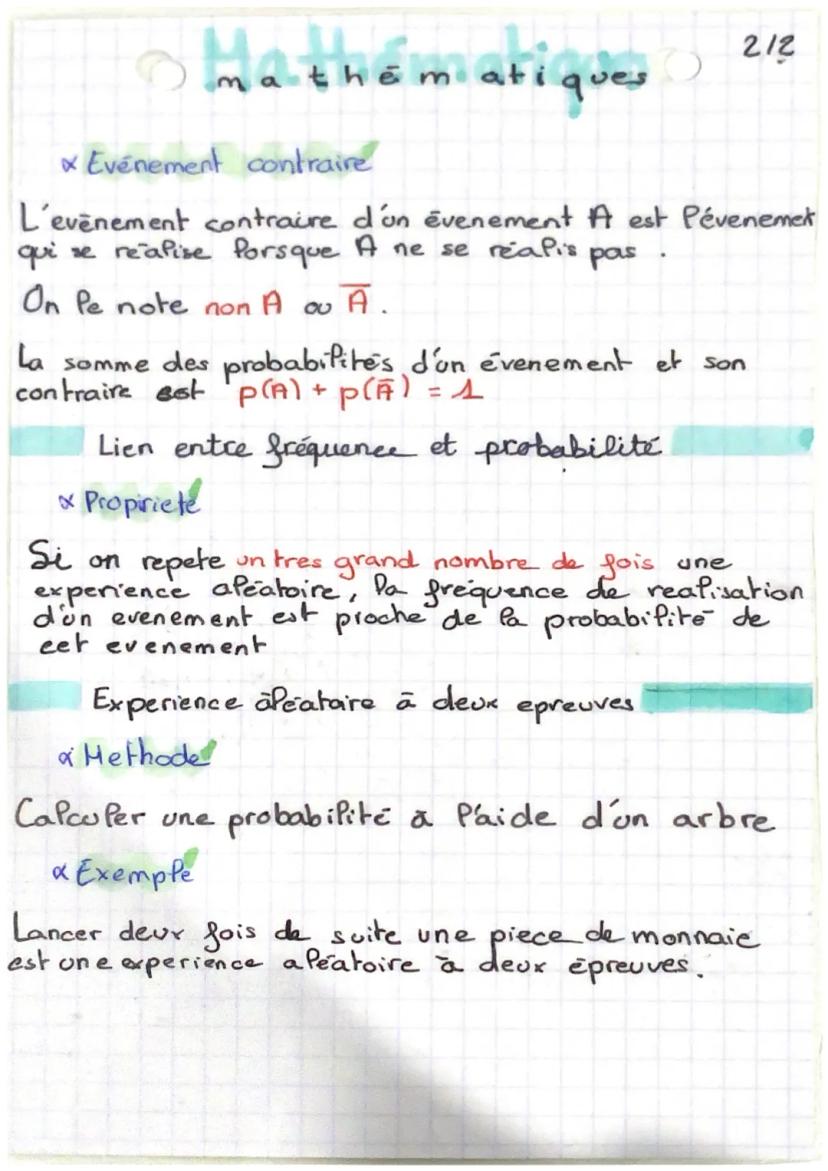 Mathématiques
mathématiques
2/2
∝ Evénement contraire
L'evènement contraire d'un évenement A est l'évenemet
qui se réalise lorsque A ne se réalis pas.
On le note non A ou A̅.
La somme des probabilités d'un évenement et son
contraire est p(A) + p(A̅) = 1
Lien entre fréquence et probabilité
∝ Propirieté
Si on repete un tres grand nombre de fois une
experience aléatoire, la fréquence de realisation
d'un evenement est proche de la probabilité de
cet evenement
Experience àléataire à deux epreuves
∝ Methode
Calculer une probabilité à l'aide d'un arbre
∝ Exemple
Lancer deux fois de suite une piece de monnaie
est une experience aléatoire à deux épreuves.